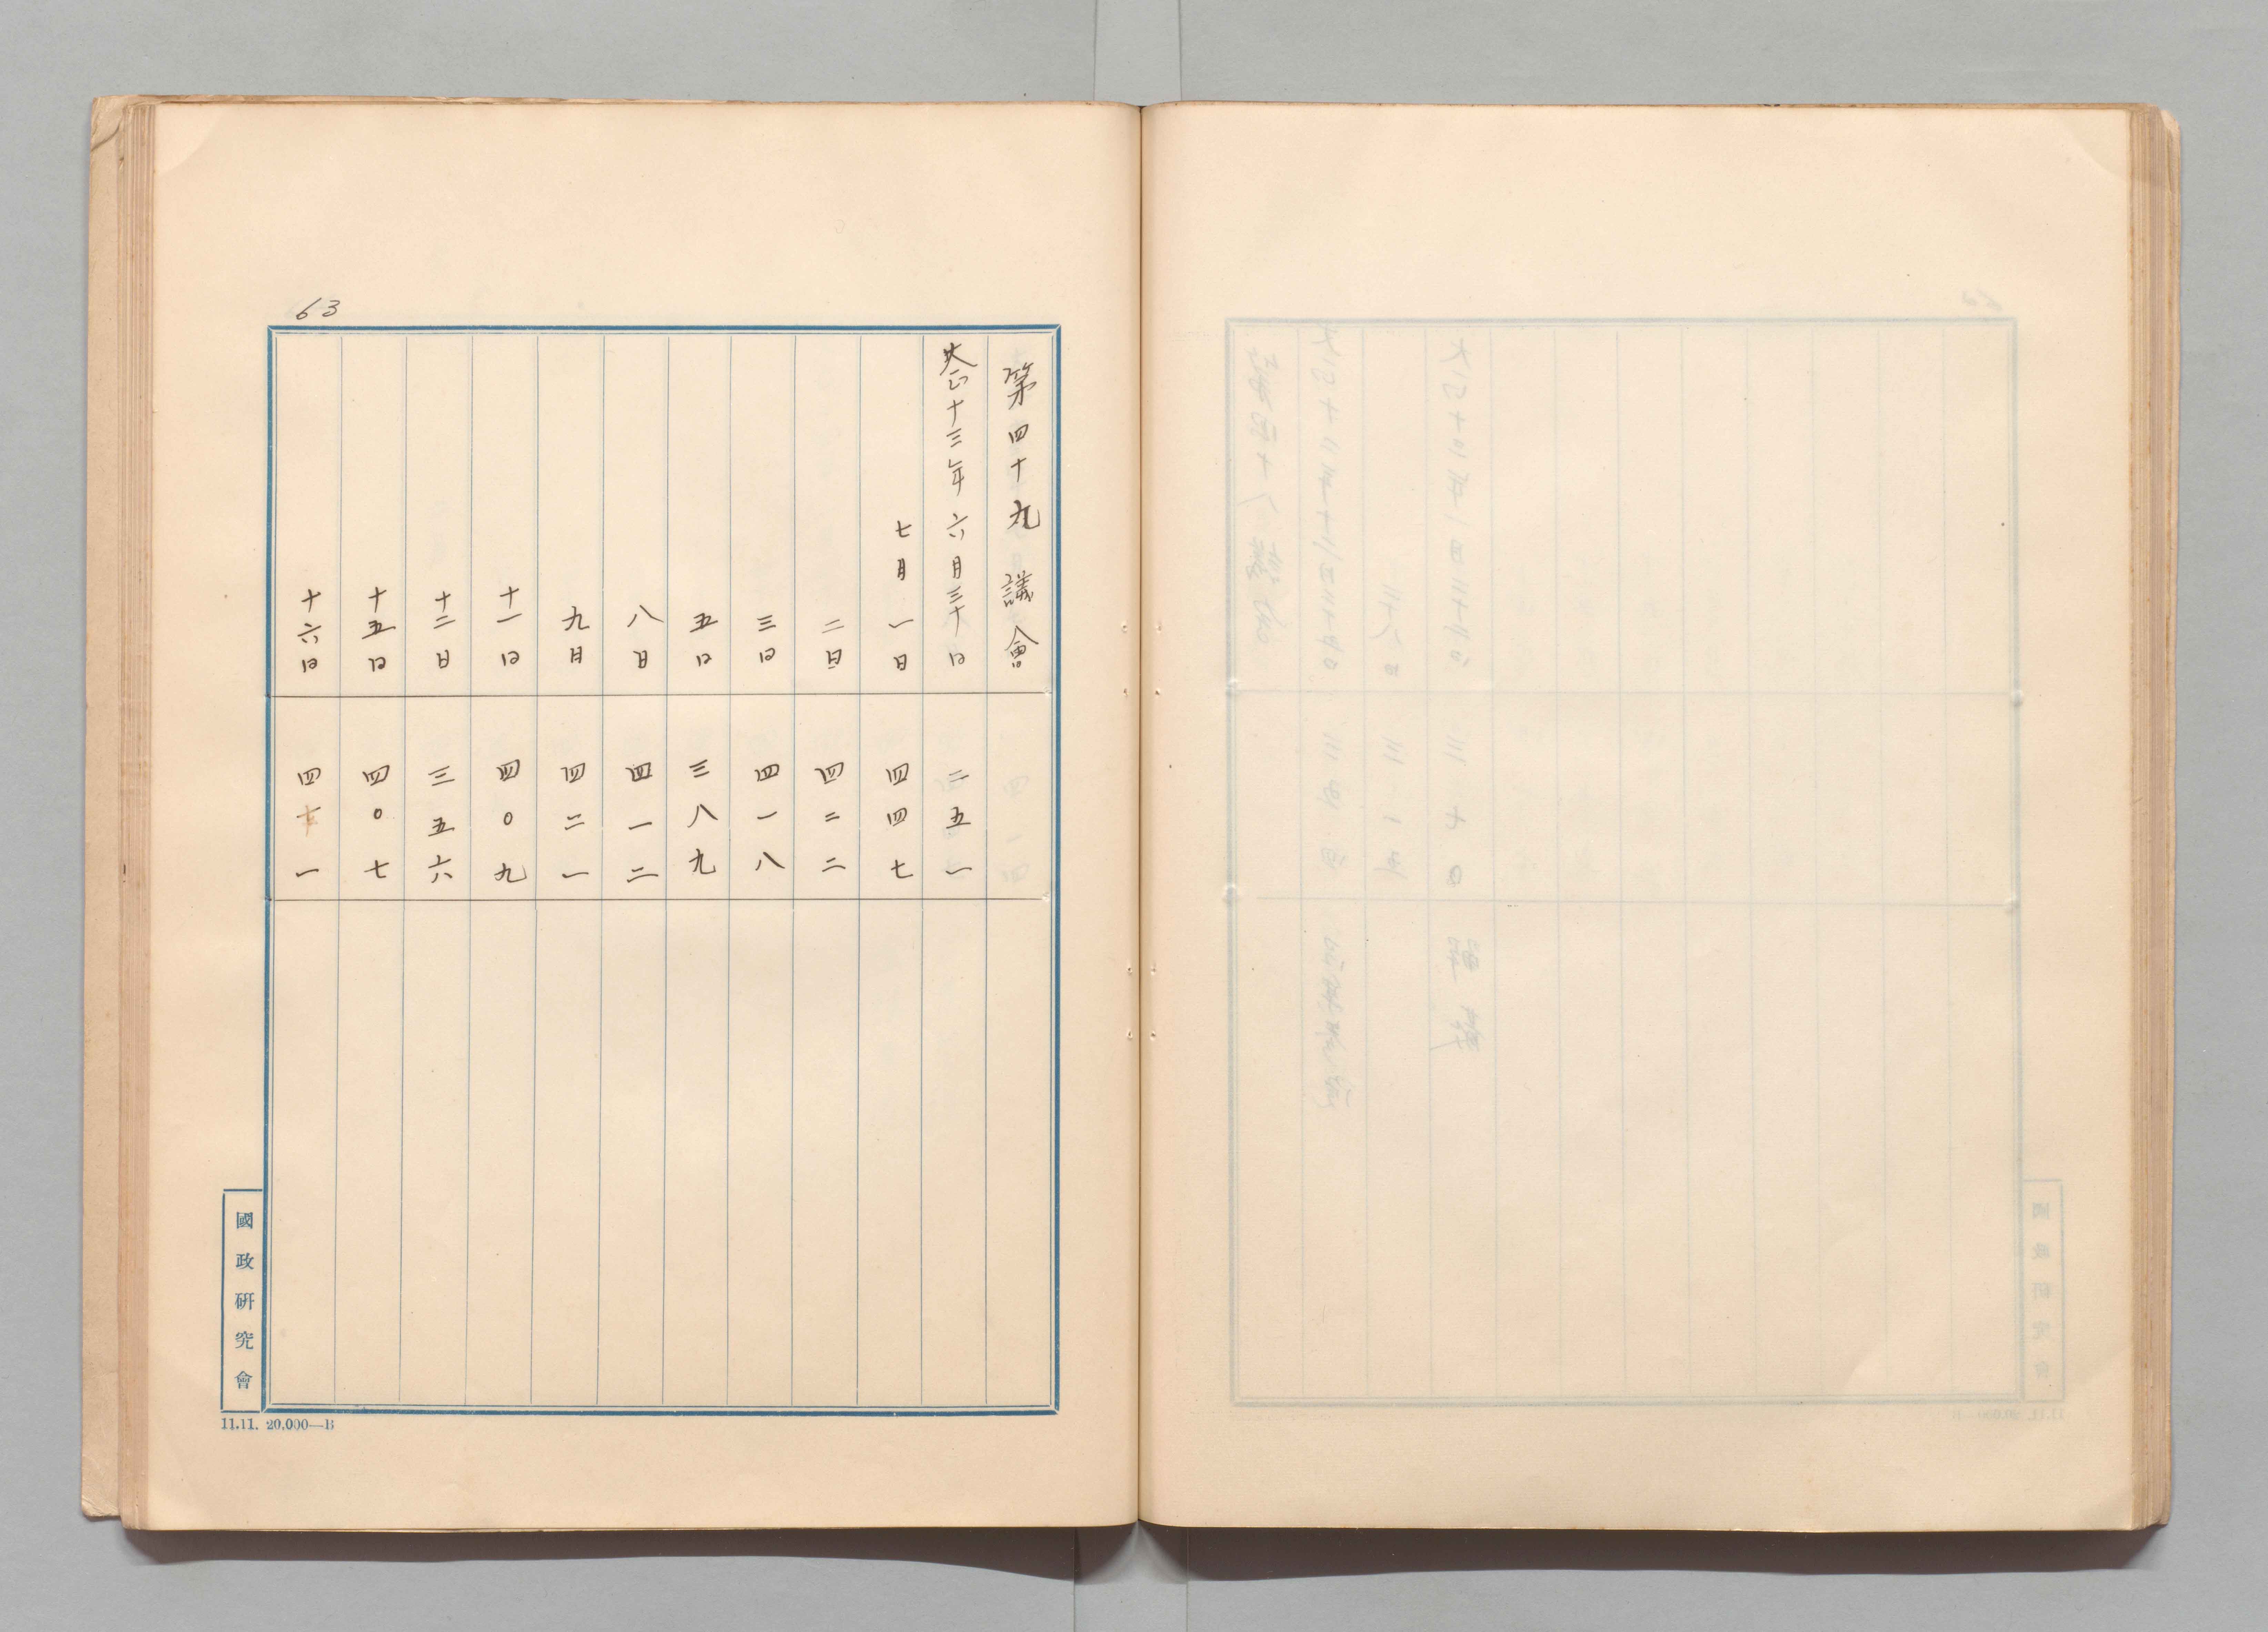 63
第四十九議會
大正十三年六月三十日 二五一
七月一日 四四七
二日 四二二
三日 四一八
五日 三八九
八日 四一二
九月 四二一
十一日 四〇九
十二日 三五六
十五日 四〇七
十六日 四十一
國政研究會
11.11. 20,000—B